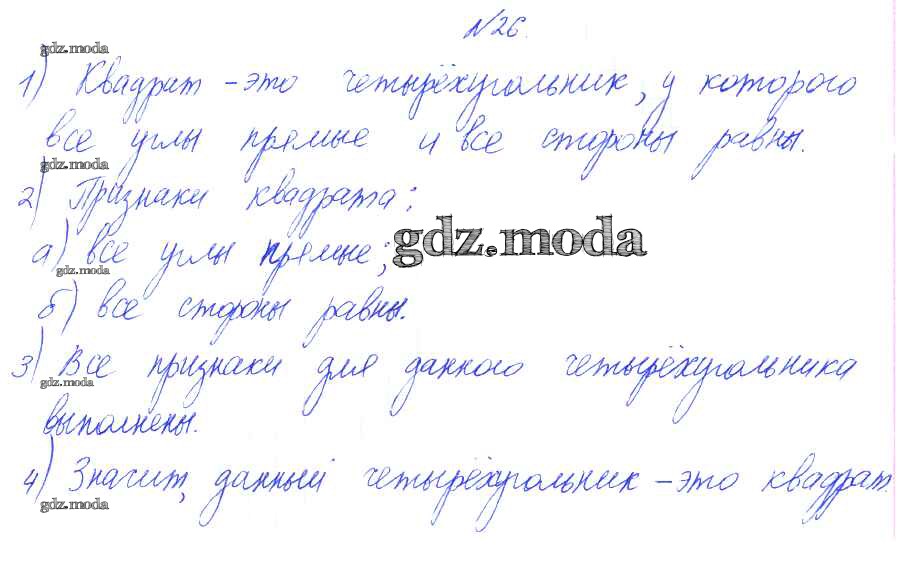 №26.
gdz.moda
1) Квадрат - это четырёхугольник, у которого
все углы прямые и все стороны равны.
gdz.moda
2) Признаки квадрата:
а) все углы прямые; gdz.moda
gdz.moda
б) все стороны равны.
3) Все признаки для данного четырёхугольника
gdz.moda
выполнены.
4) Значит, данный четырёхугольник - это квадрат.
gdz.moda